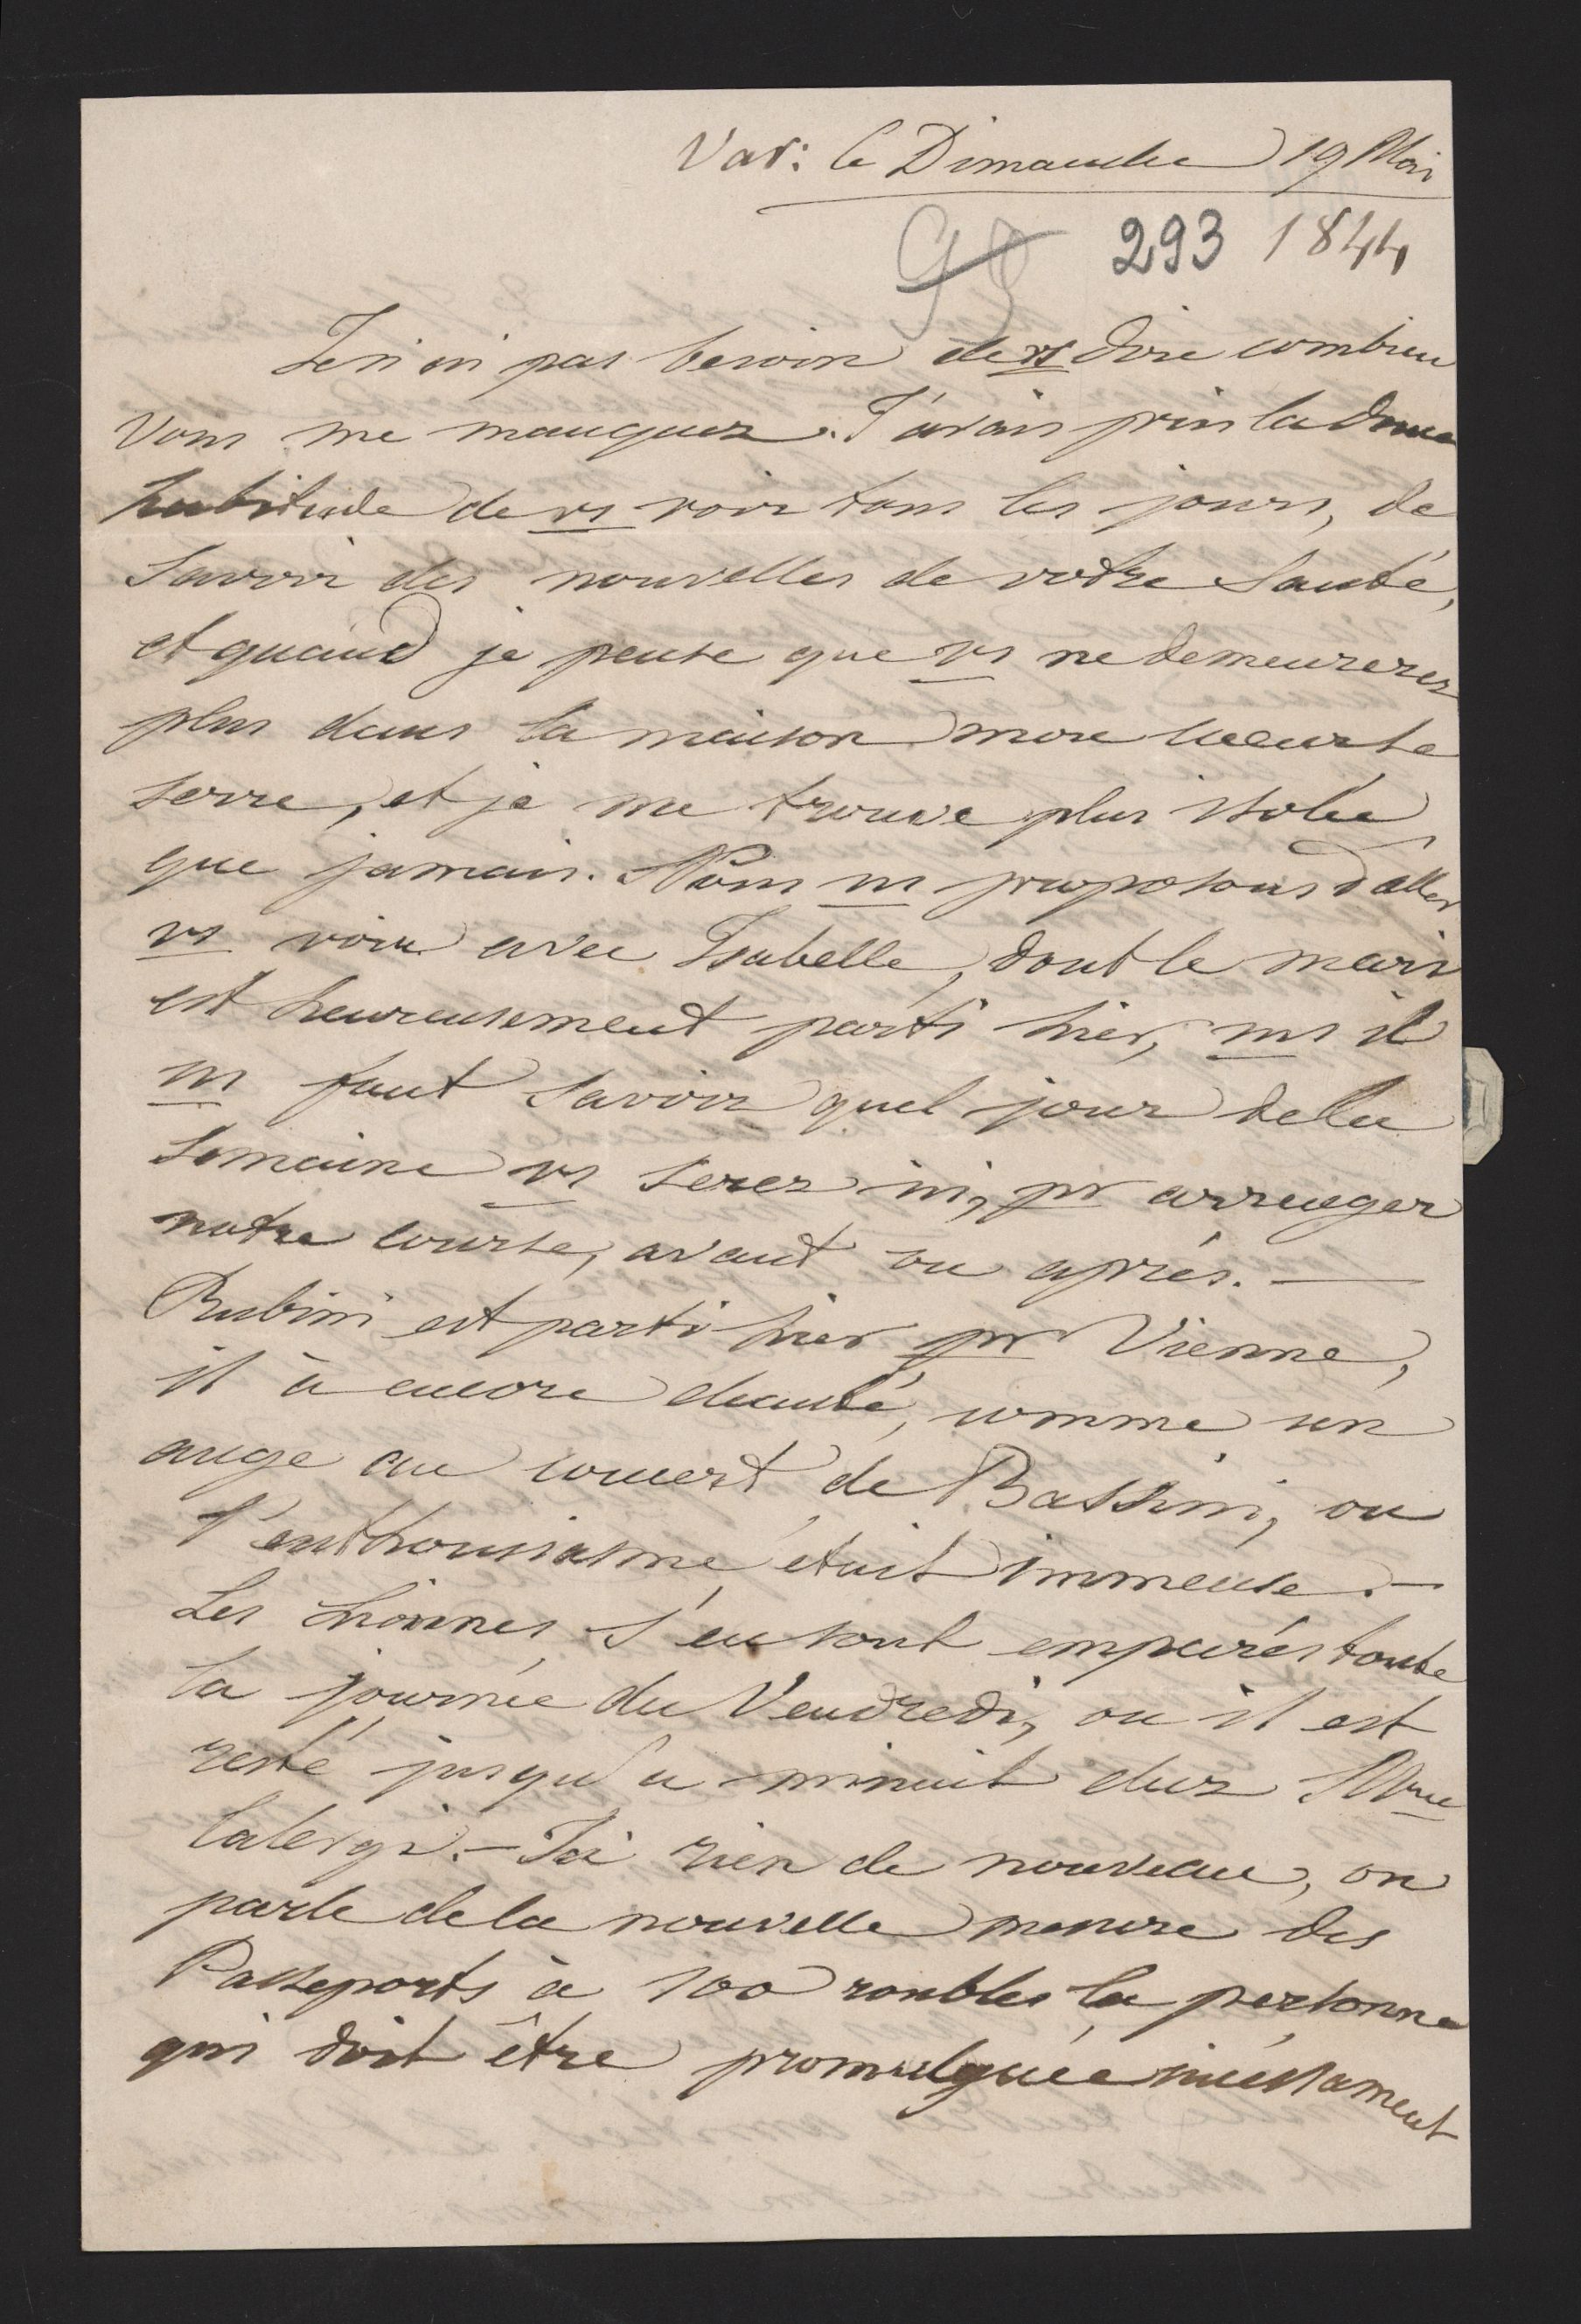 Var: le Dimanche 19 Mai
98 293 1844
Je n'ai pas besoin de vs dire combien
Vous me manquez. J'avais pris la douce
habitude de vs voir tous les jours, de
savoir des nouvelles de votre santé,
et quand je pense que vs ne demeurerez
plus dans la maison mon coeur se
serre, et je me trouve plus isolée
que jamais. Nous ns proposons d'aller
vs voir avec Isabelle, dont le mari
est heureusement parti hier, ms il
ns faut savoir quel jour de la
semaine vs serez ici, pr arranger
notre course, avant ou après. —
Rubini est parti hier pr Vienne,
il à encore chanté, comme un
ange au concert de Bassini, ou
l'enthousiasme était immense. —
Les lionnes s'en sont emparés toute
la journée du Vendredi, ou il est
resté jusqu'a minuit chez Mme
Calergi. — Ici rien de nouveau, on
parle de la nouvelle mesure des
Passeports à 100 roubles la personne
qui doit être promulguée incessament